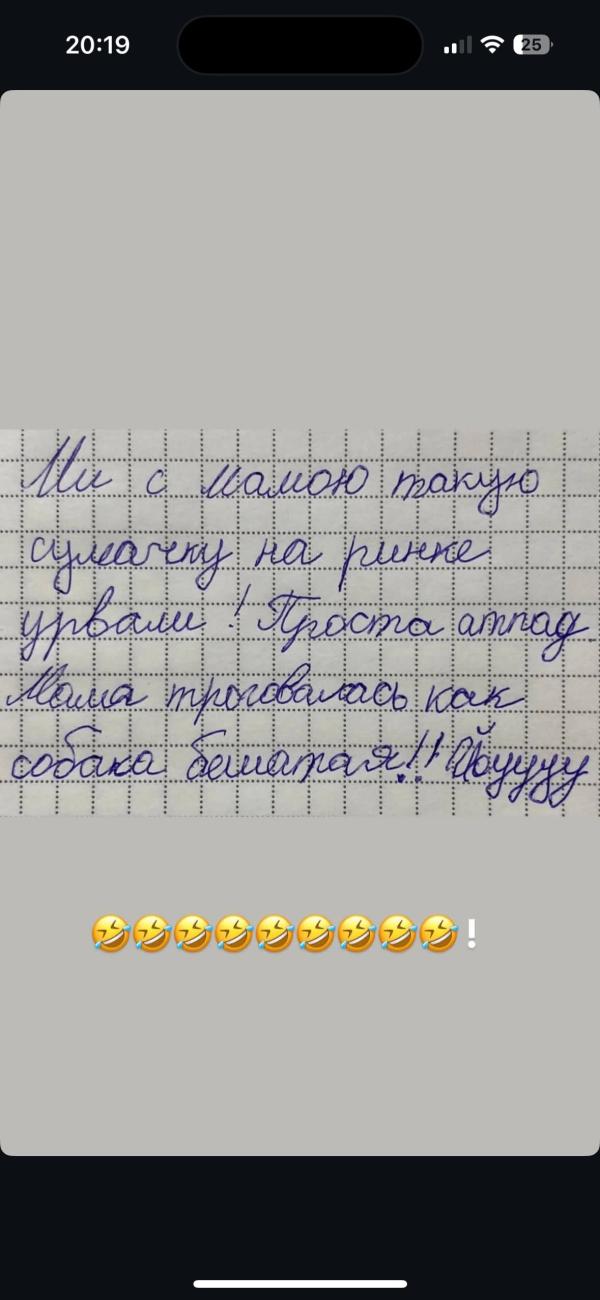 20:19
25
Ми с мамою такую
сумачку на ринке
урвали! Проста атпад.
Мама троговалась как
собака бешатая!!! Йоуууу
🤣🤣🤣🤣🤣🤣🤣🤣🤣!